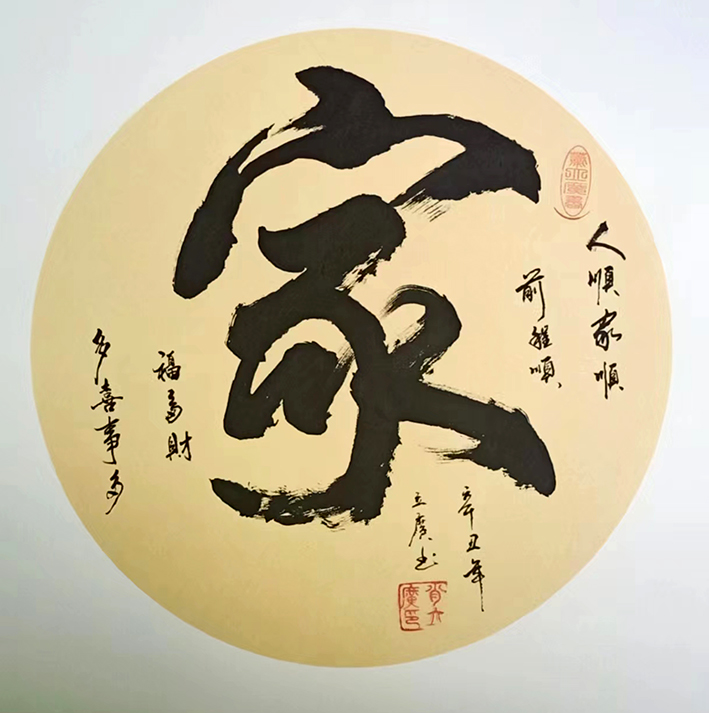 家
人順家順
前程順
福多財
多喜事多
辛丑年
立廣书
肖立
廣印